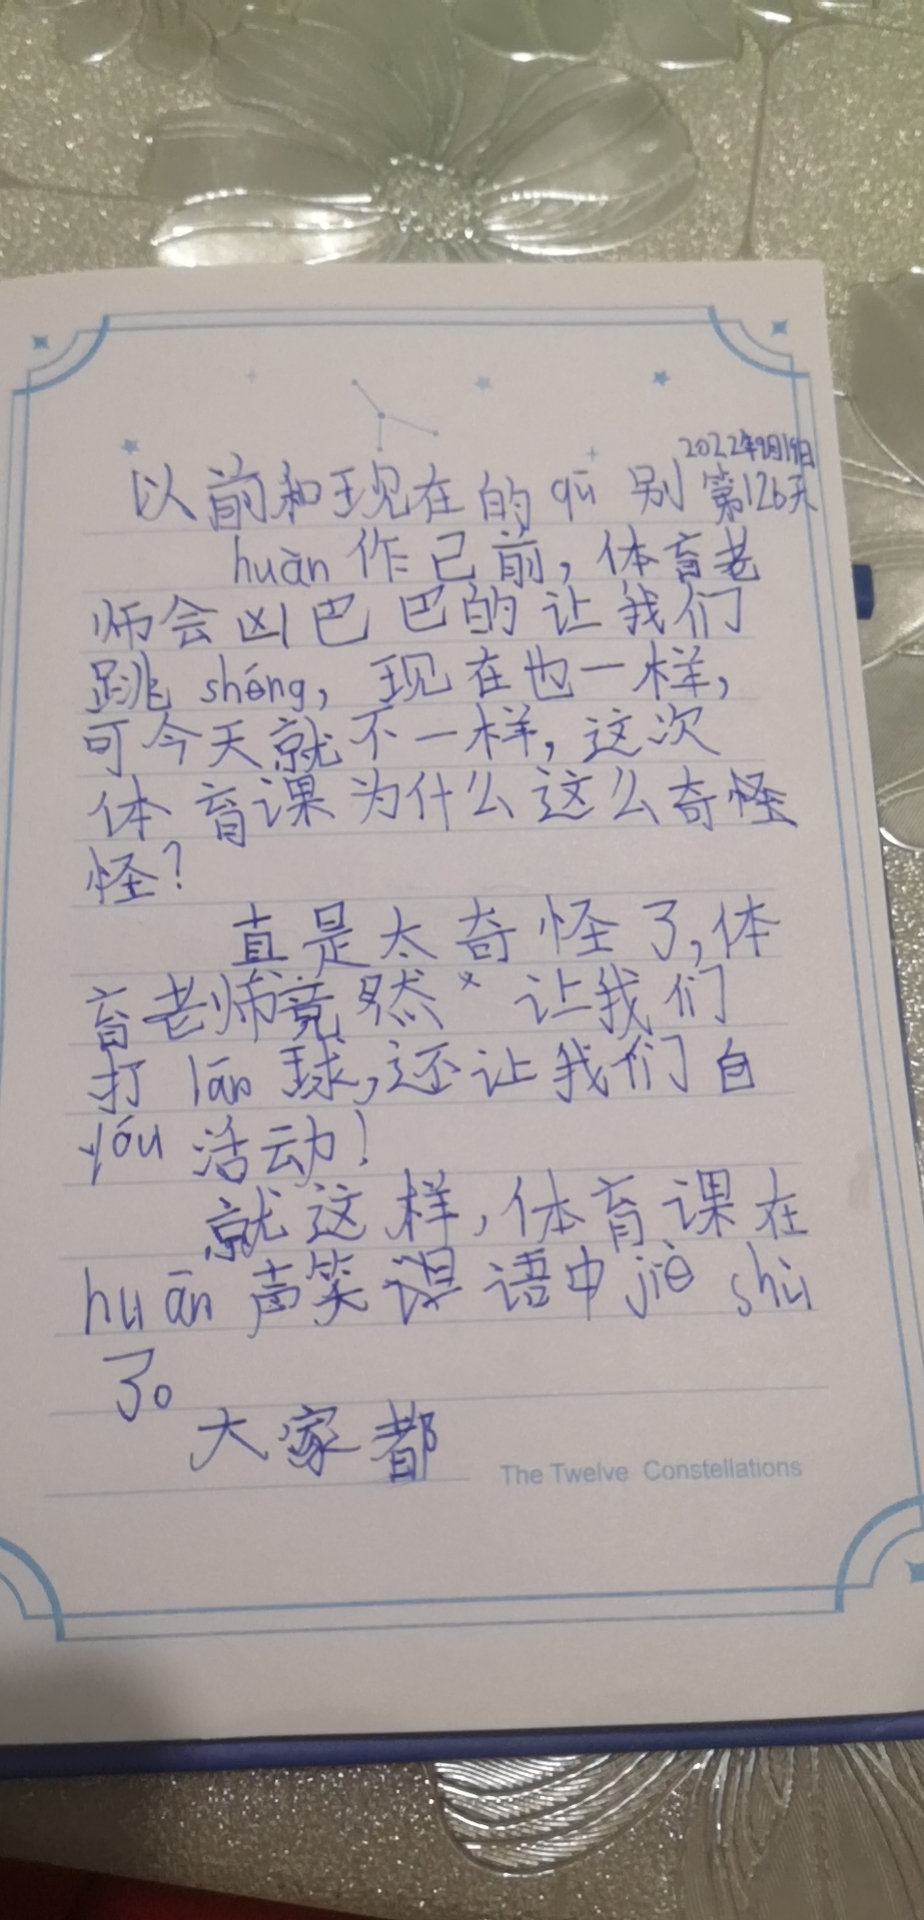 2022年9月19日
以前和现在的 qū 别 第126天
huàn 作已前,体育老
师会凶巴巴的让我们
跳 shéng,现在也一样,
可今天就不一样,这次
体育课为什么这么奇怪
怪?
直是太奇怪了,体
育老师竟然 让我们
打 lán 球,还让我们自
yóu 活动!
就这样,体育课在
huān 声笑语中 jiē shù
了。
大家都
The Twelve Constellations